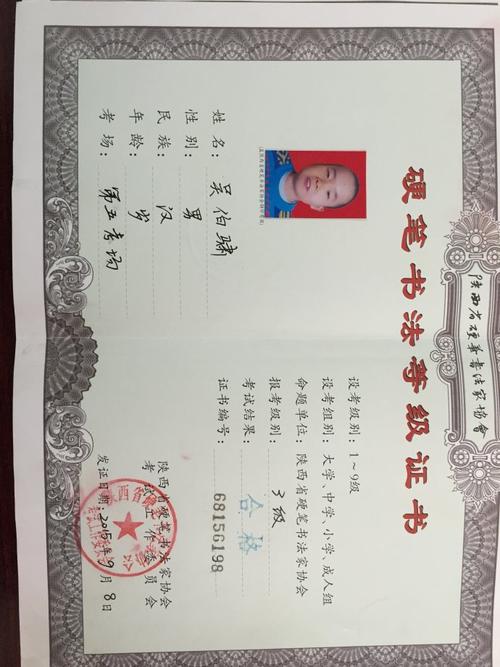 陕西省硬笔书法家协会
硬笔书法等级证书
姓名：吴伯骕
性别：男
民族：汉
年龄：岁
考场：第五考场
设考级别：1~9级
设考组别：大学、中学、小学、成人组
命题单位：陕西省硬笔书法家协会
报考级别：3级
考试结果：合格
证书编号：68156198
陕西省硬笔书法家协会
考试工作委员会
发证日期：2015年9月8日